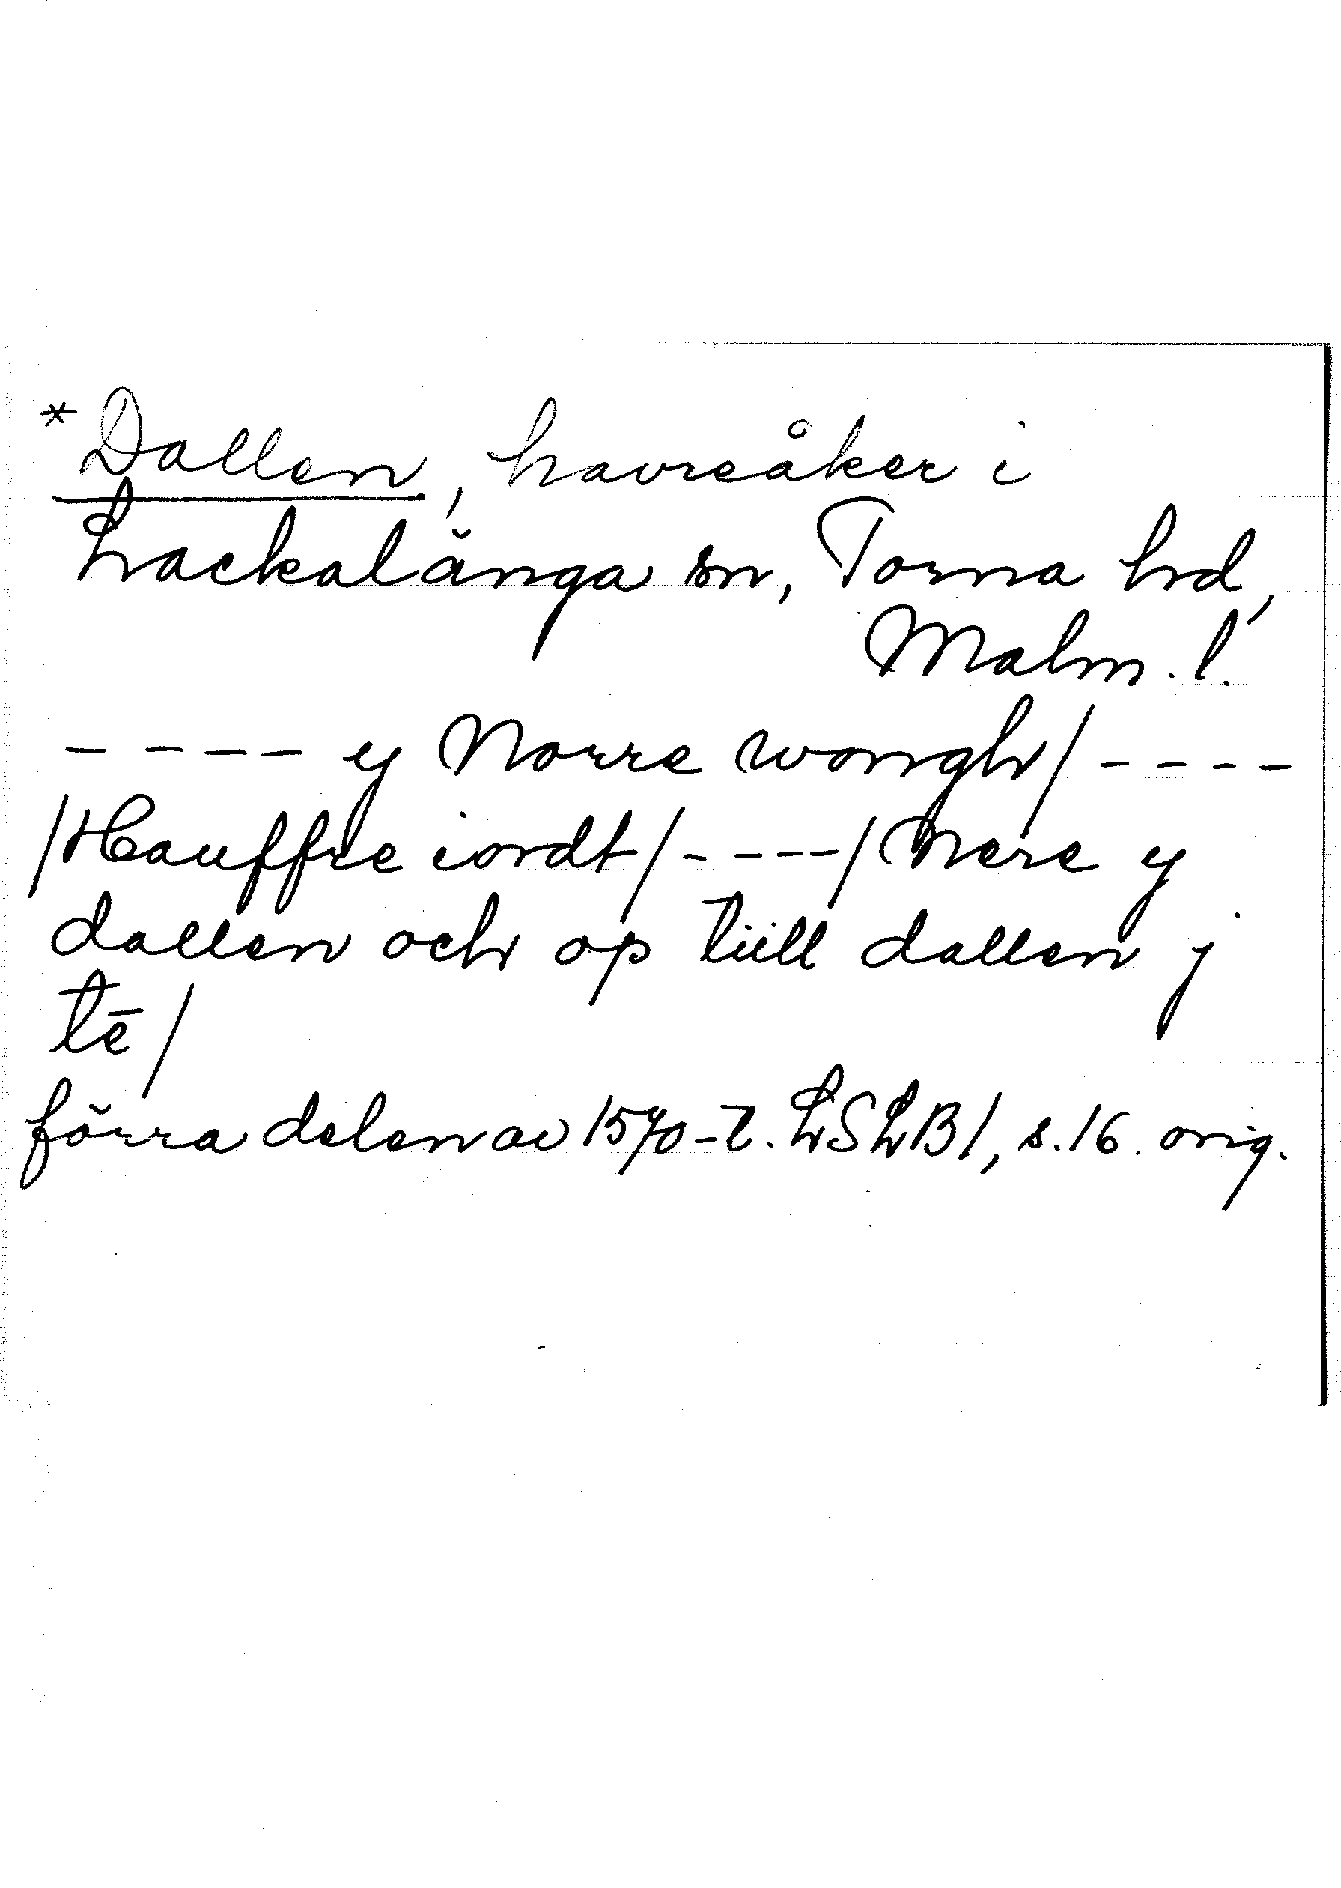 *Dallen, havreåker i
Lackalänga sn, Torna hd,
Malm. l.
---- y Norre wongh/ ----
/Hauffre iordt/----/Nere y
dallen och op tiill dallen j
tē/
förra delen av 1570-t. LSLB1, s.16. orig.